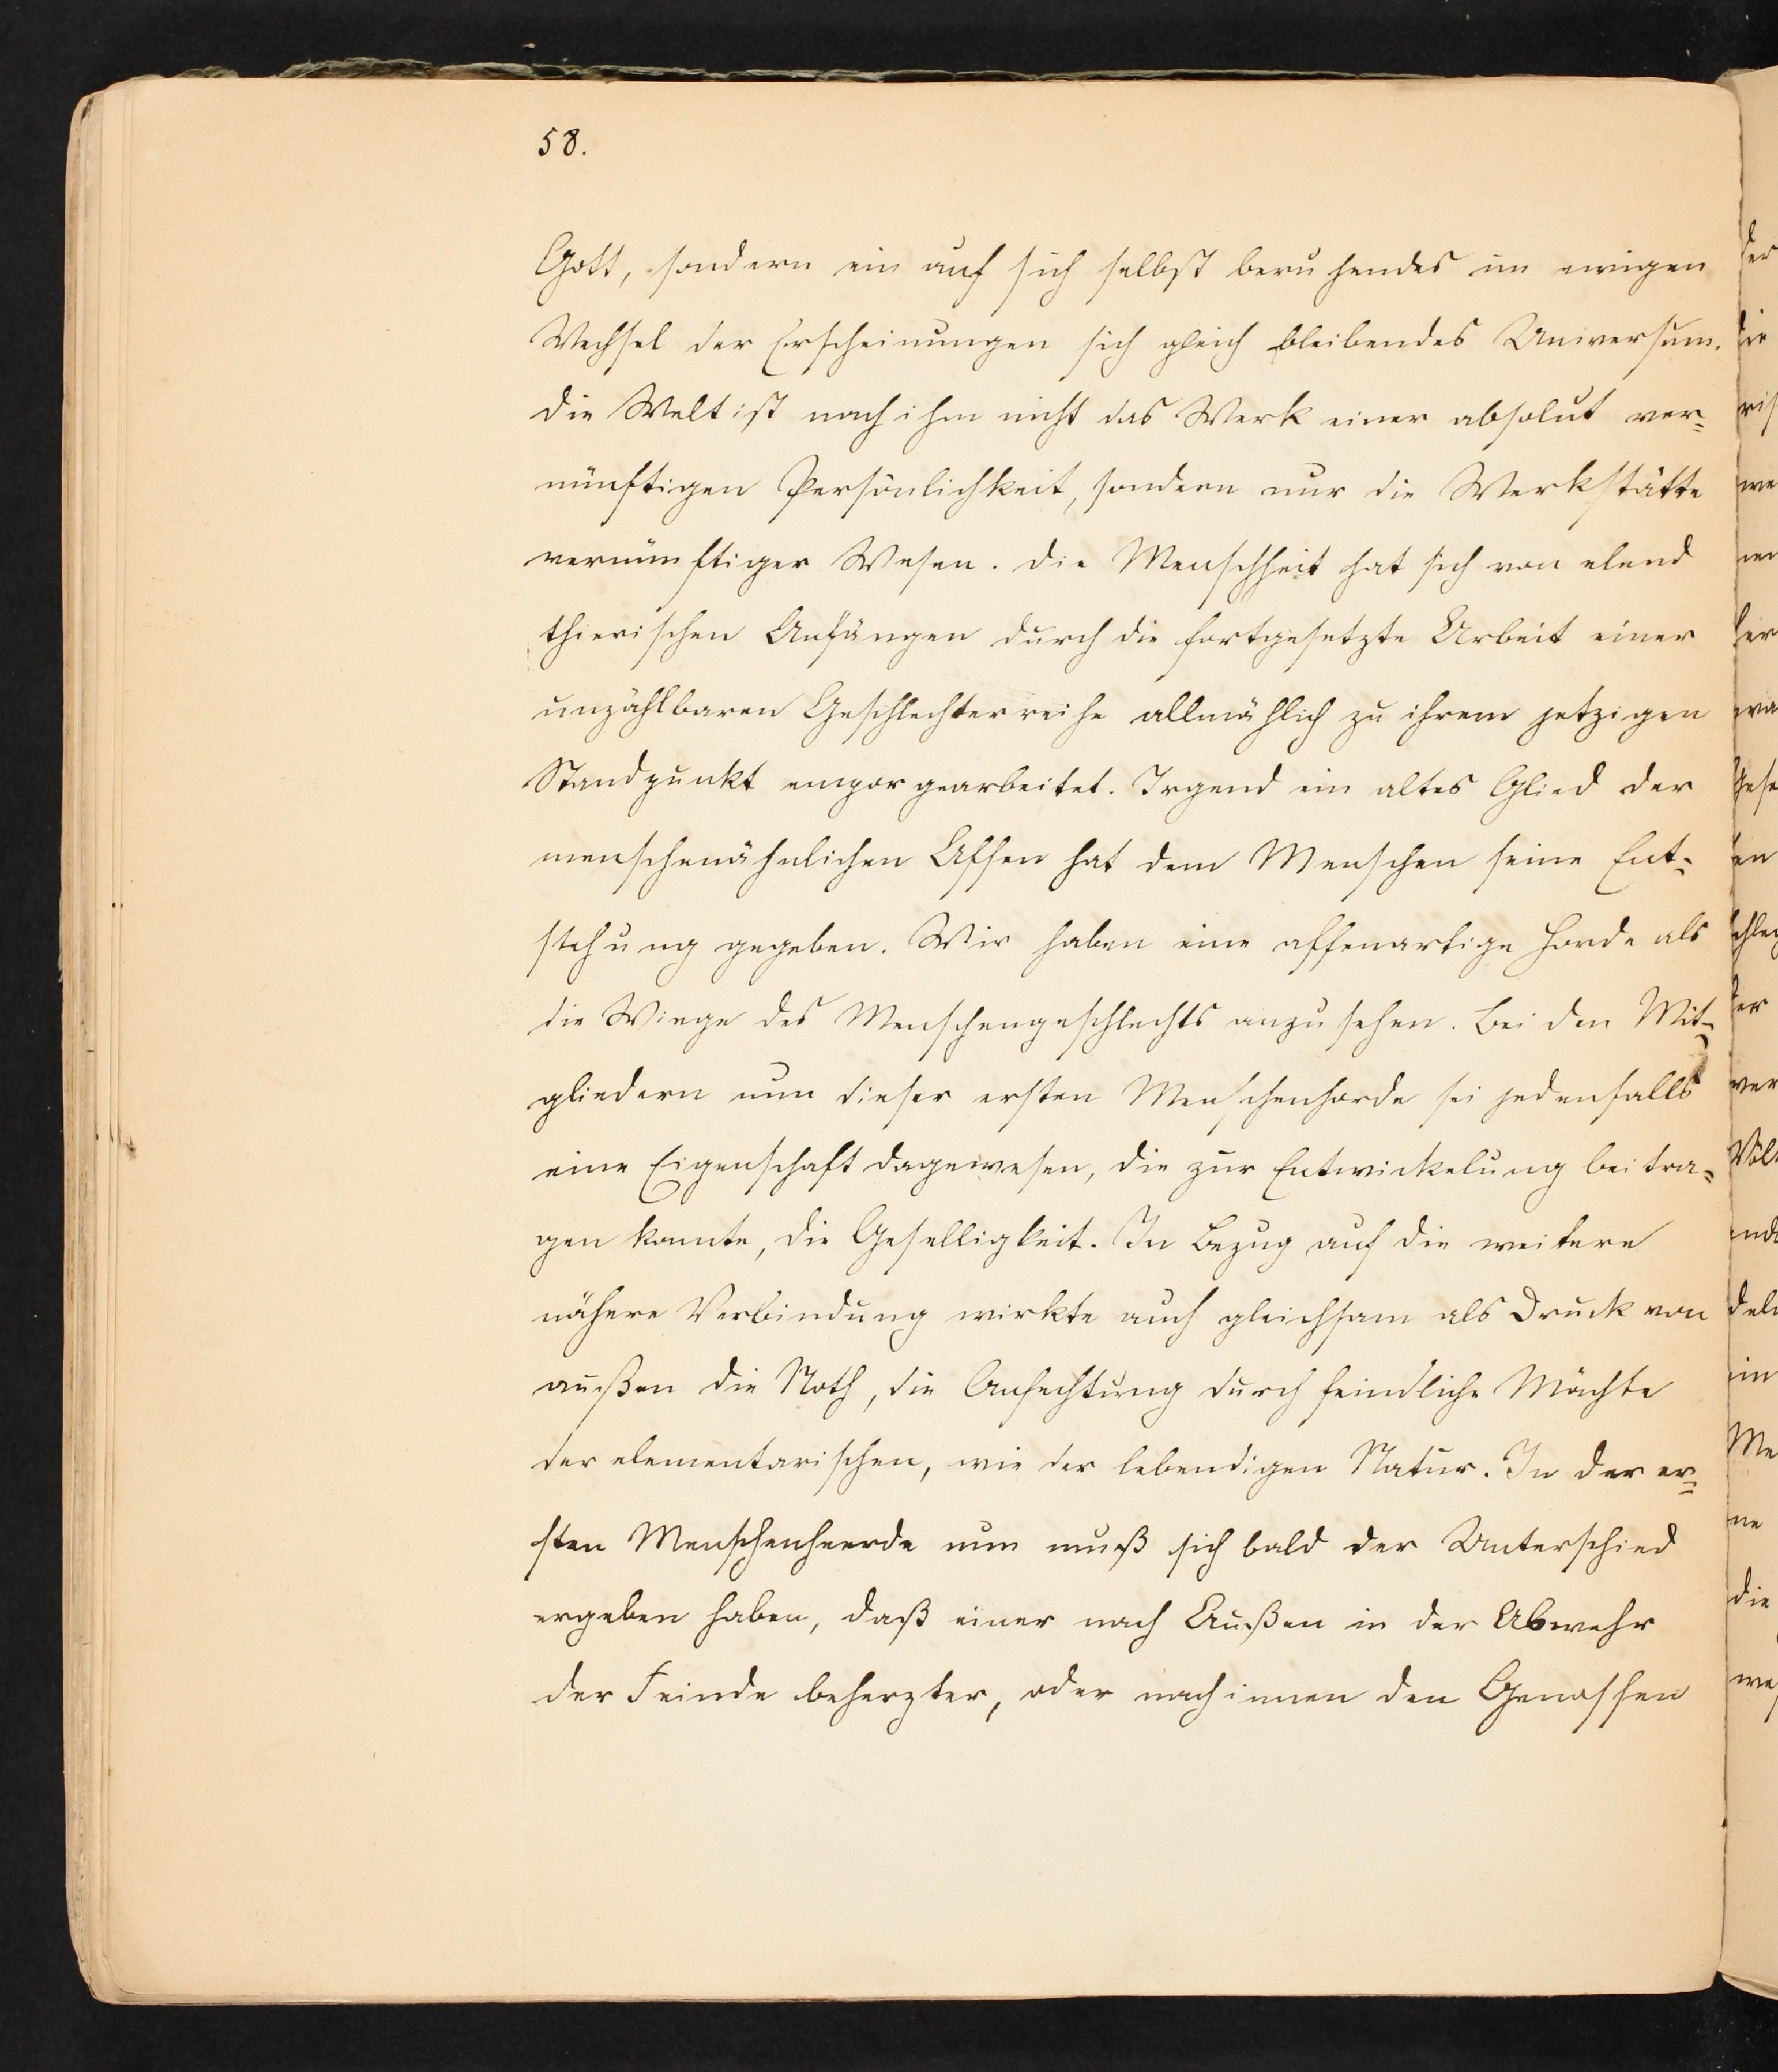 58.
Gott, sondern ein auf sich selbst beruhendes im ewigen
Wechsel der Erscheinungen sich gleich bleibendes Universum.
Die Welt ist nach ihm nicht das Werk einer absolut ver=
nünftigen Persönlichkeit, sondern nur die Werkstätte
vernünftiger Wesen. Die Menschheit hat sich von elend
thierischen Anfängen durch die fortgesetzte Arbeit einer
unzählbaren Geschlechterreihe allmählich zu ihrem jetzigen
Standpunkt emporgearbeitet. Irgend ein altes Glied der
menschenähnlichen Affen hat dem Menschen seine Ent=
stehung gegeben. Wir haben eine affenartige Horde als
die Wiege des Menschengeschlechts anzusehen. Bei den Mit=
gliedern nun dieser ersten Menschenhorde sei jedenfalls
eine Eigenschaft dagewesen, die zur Entwickelung beitra=
gen konnte, die Geselligkeit. In Bezug auf die weitere
nähere Verbindung wirkte auch gleichsam als Druck von
außen die Noth, die Anfechtung durch feindliche Mächte
der elementarischen, wie der lebendigen Natur. In der er=
sten Menschenheerde nun muß sich bald der Unterschied
ergeben haben, daß einer nach Außen in der Abwehr
der Feinde beherzter, oder nach innen den Genossen